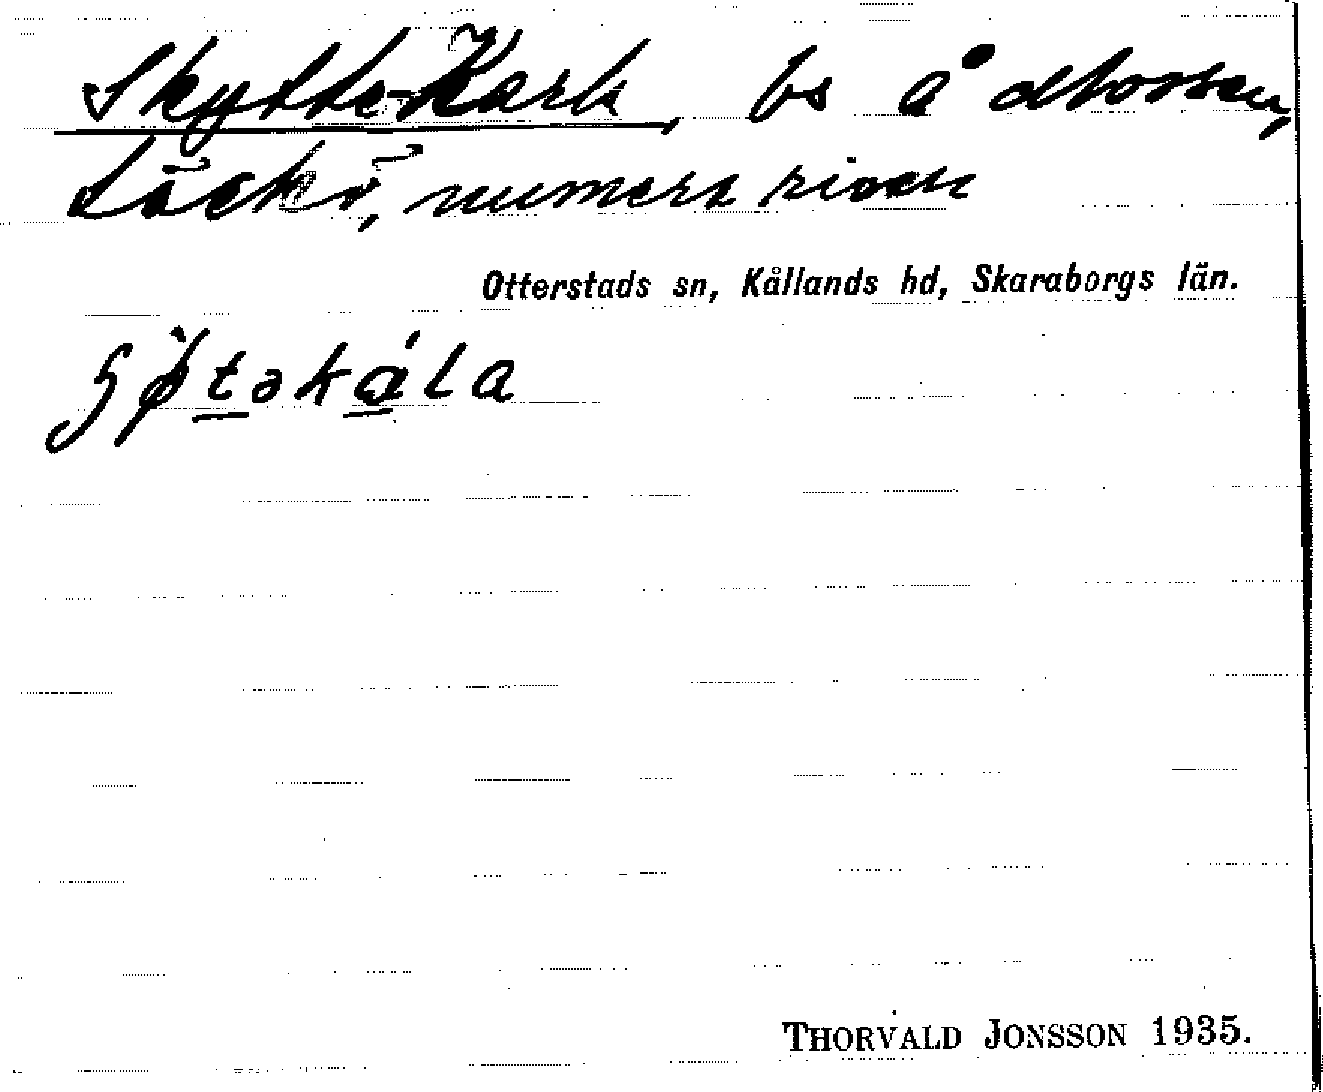 Skytte-Karls, bs å dtossen,
Läckö, numera riven
Otterstads sn, Kållands hd, Skaraborgs län.
THORVALD JONSSON 1935.